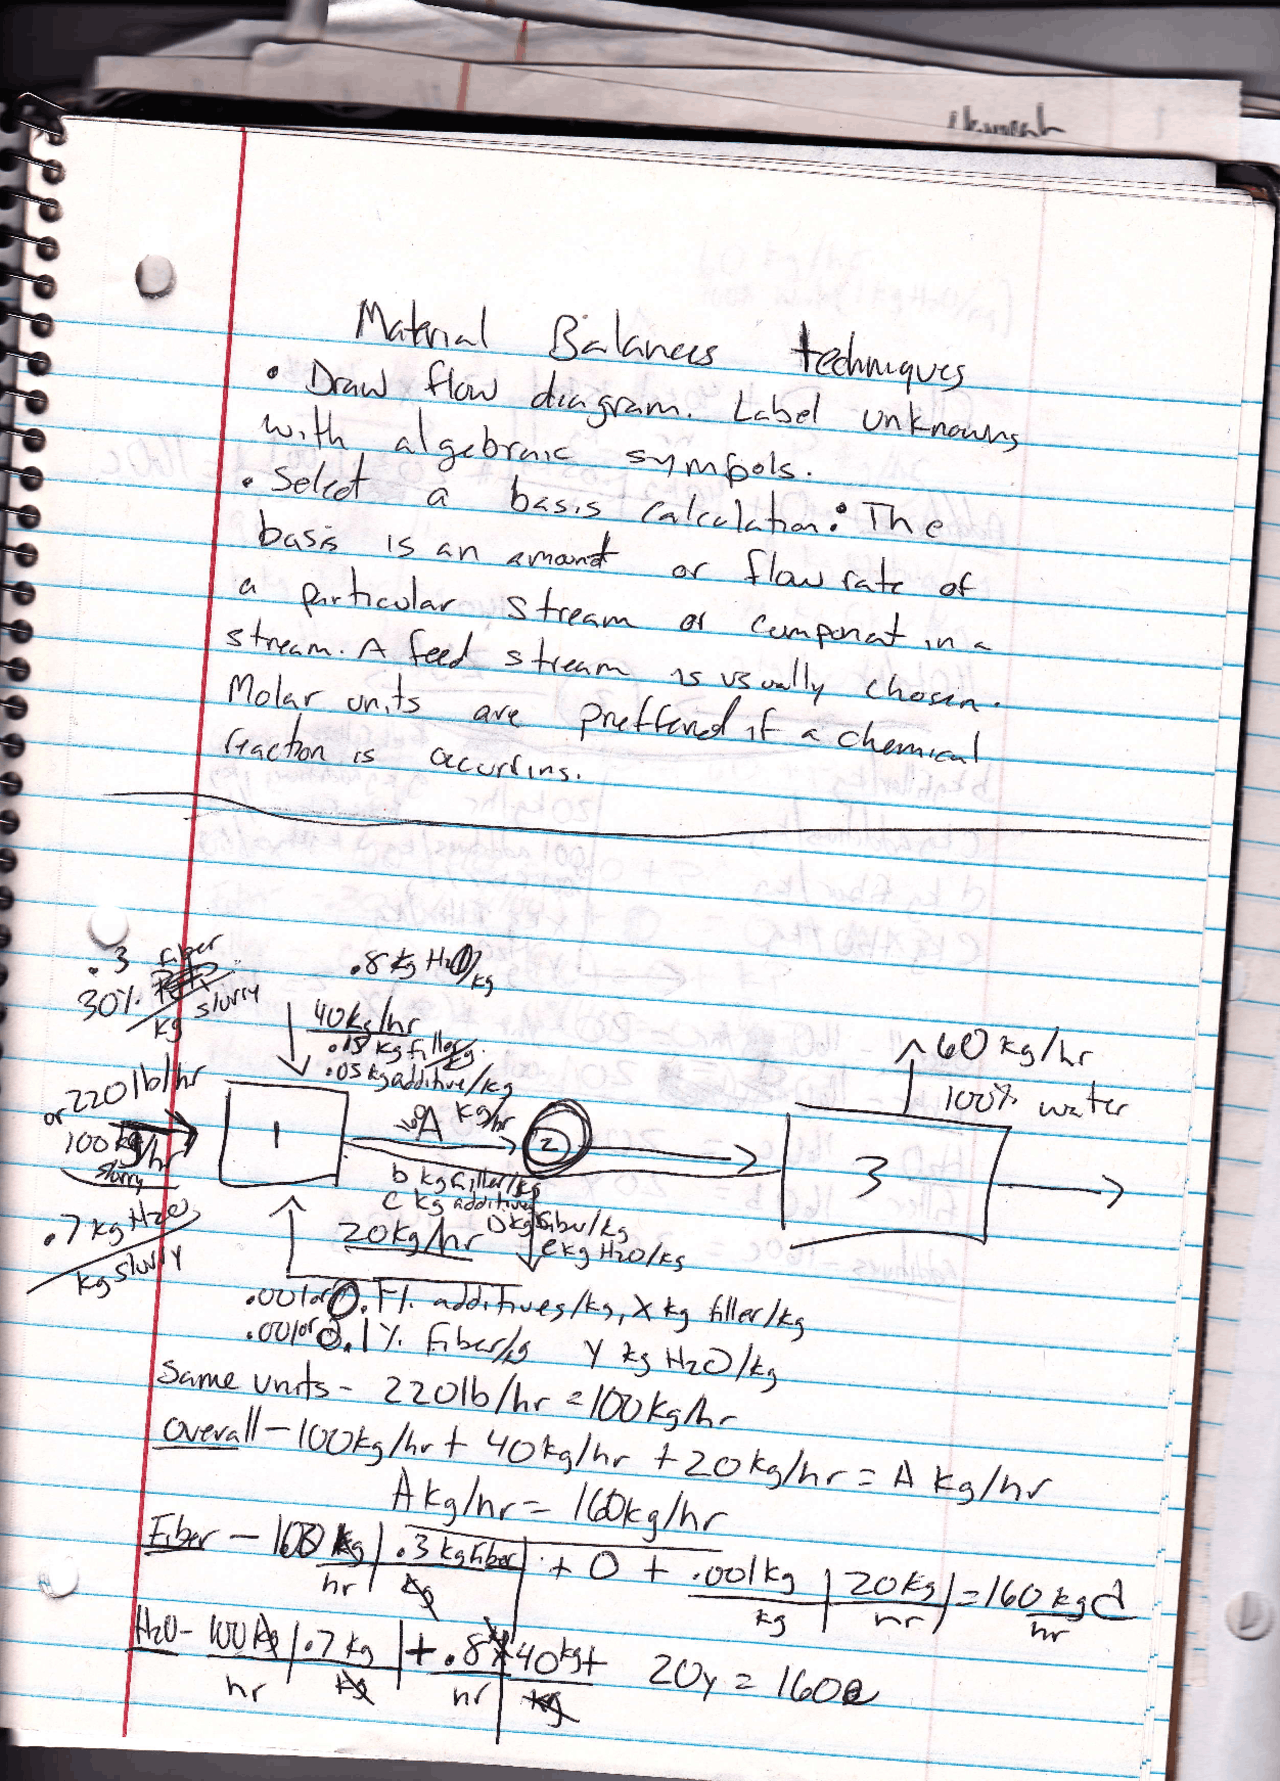 Material Balances techniques
• Draw flow diagram. Label unknowns
with algebraic symbols.
• Select a basis calculation: The
basis is an amount or flow rate of
a particular stream or component in a
stream. A feed stream is usually chosen.
Molar units are preffered if a chemical
reaction is occurring.
.3 Fiber
30%
kg slurry
.8 kg H2O/kg
40kg/hr
.15 kg filler/kg
.05 kg additive/kg
60 kg/hr
100% water
220 lb/hr
or 100 kg/hr
slurry
.7 kg H2O
kg slurry
1
A kg/hr
2
3
b kg filler/kg
c kg additive
D kg Fiber/kg
e kg H2O/kg
20kg/hr
.001 or 0.1% additives/kg, X kg filler/kg
.001 or 0.1% Fiber/kg Y kg H2O/kg
Same units - 220 lb/hr = 100 kg/hr
Overall - 100kg/hr + 40kg/hr + 20kg/hr = A kg/hr
A kg/hr = 160kg/hr
Fiber - 100 kg/hr | .3 kg Fiber/kg | + 0 + .001kg/kg | 20kg/hr | = 160 kg/hr d
H2O - 100 kg/hr | .7 kg/kg | + .8 /hr | 40 kg/kg + 20y = 160e